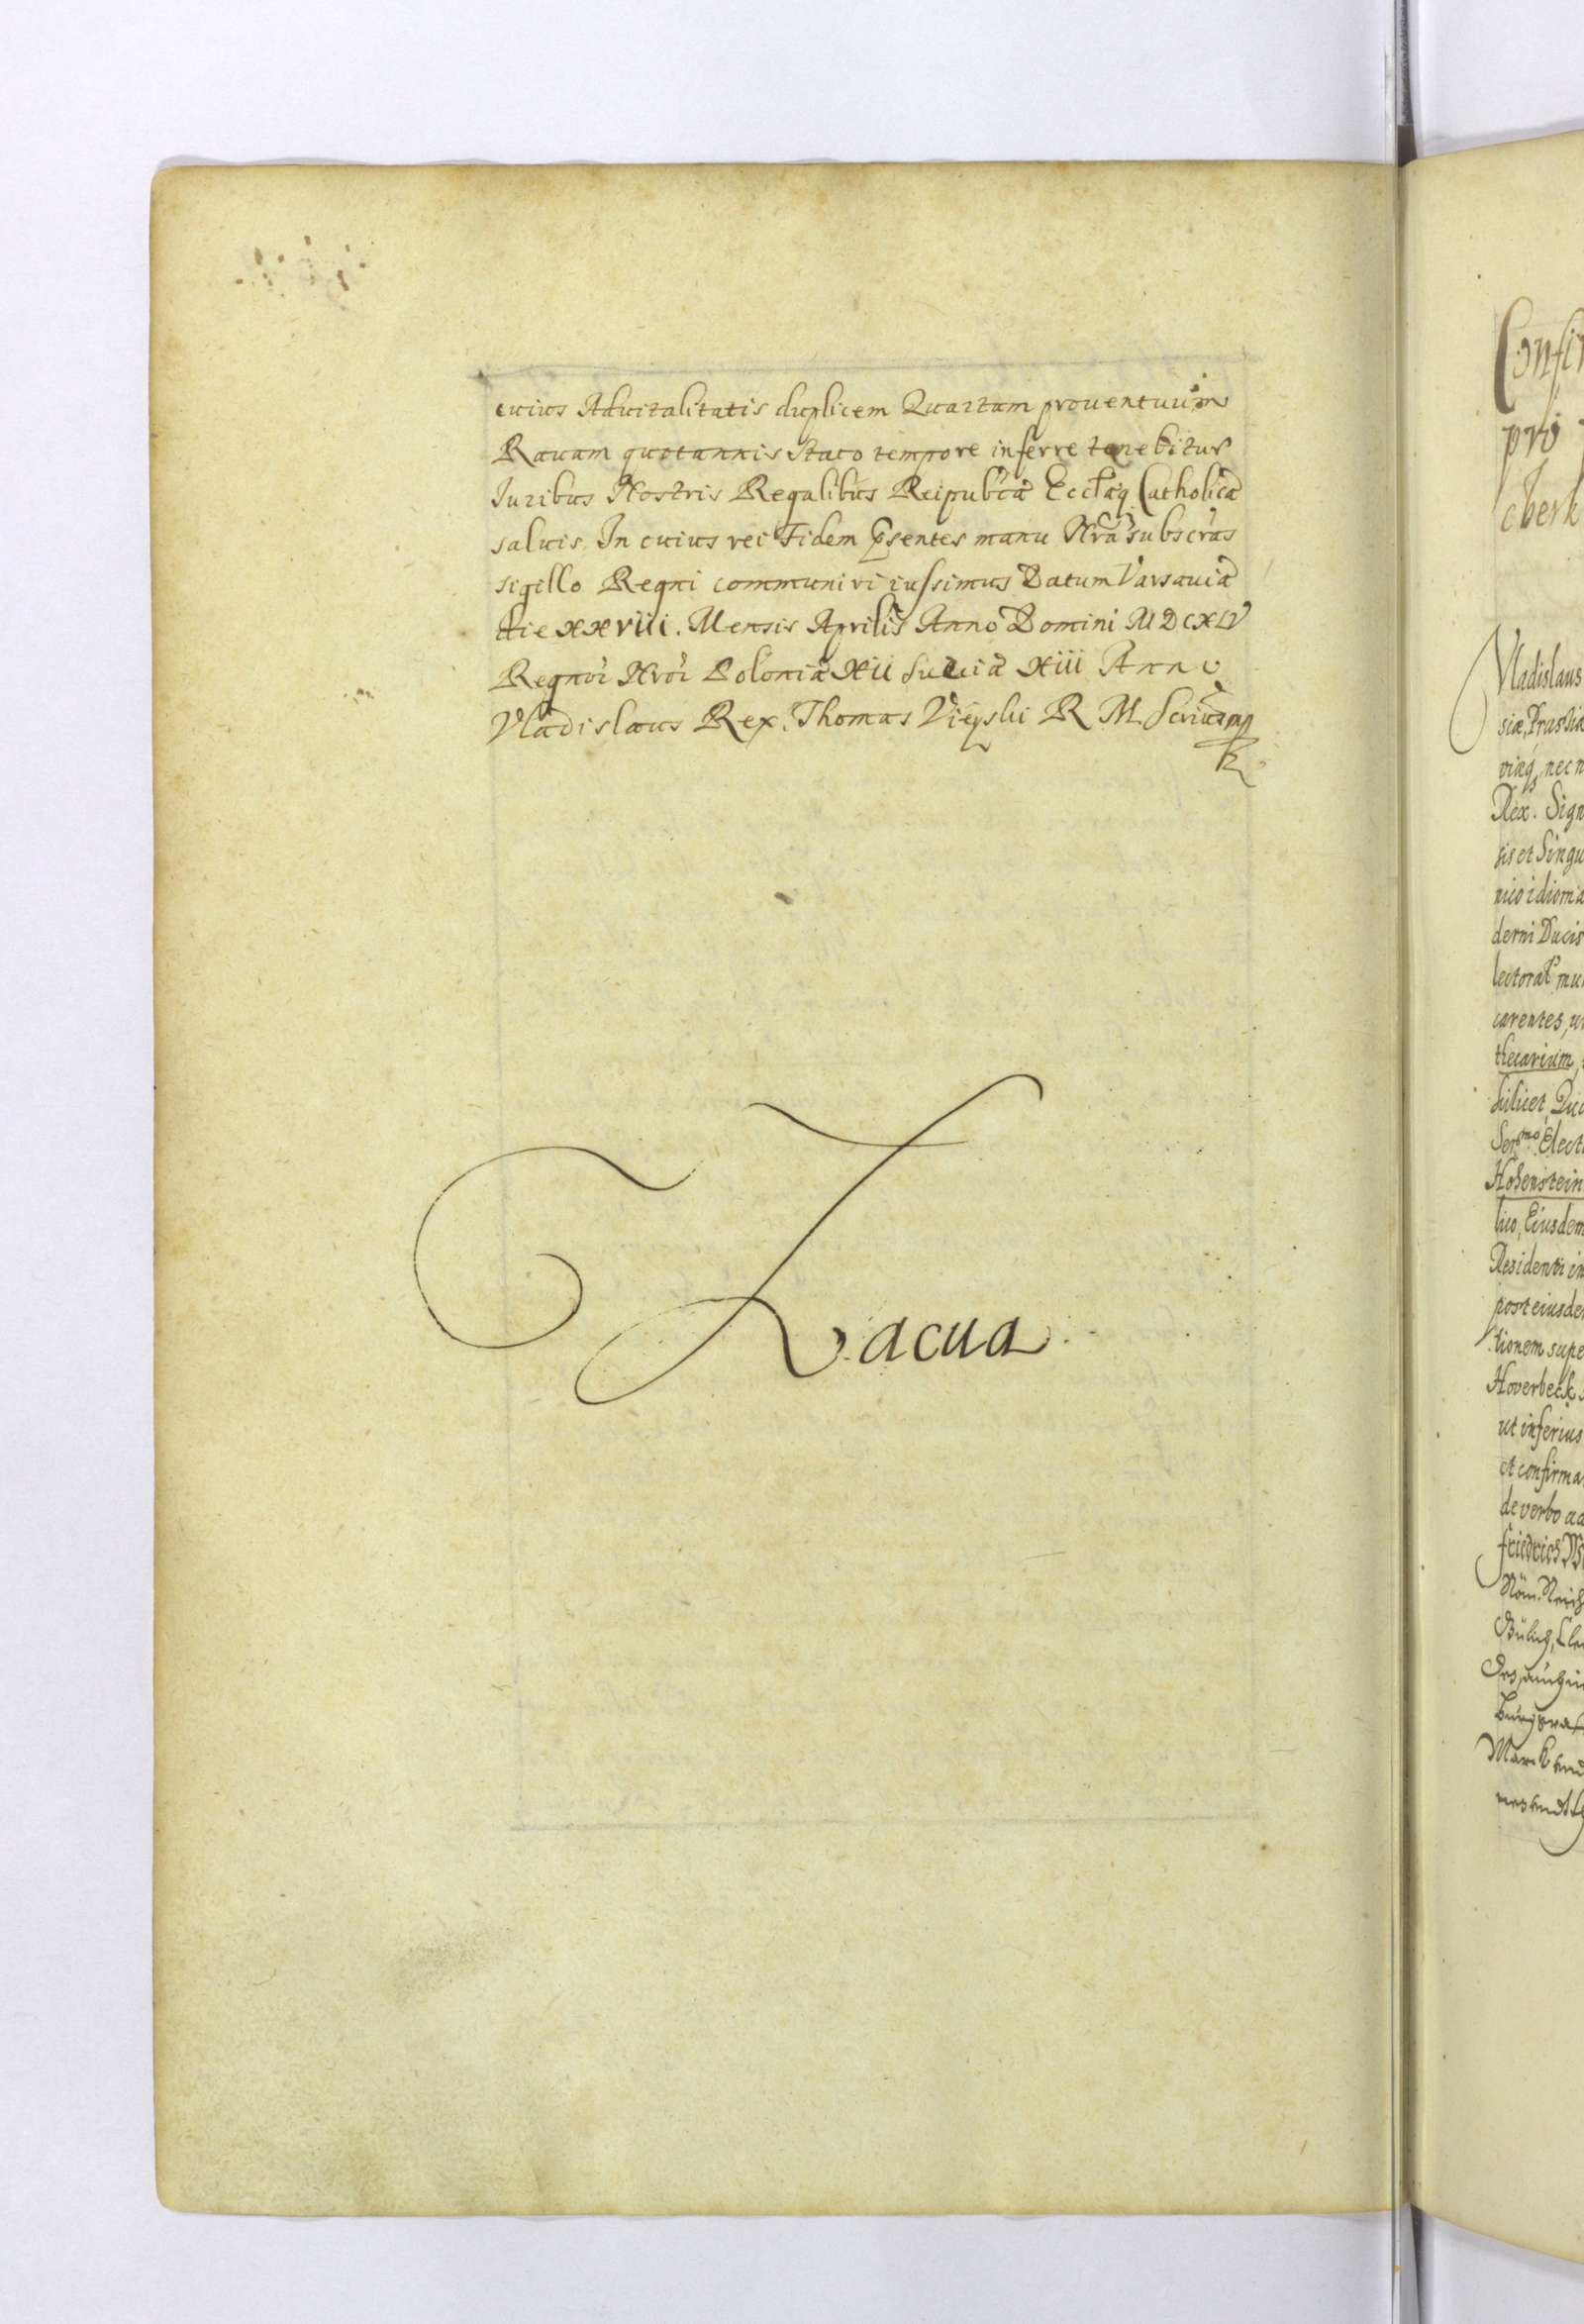 cuius Aduitalitatis duplicem Quartam prouentuum
Rauam quotannis stato tempore inferre tenebitur
Iuribus Nostris Regalibus Reipub'ca Eccl'aq Catholica
saluis. In cuius rei Fidem Psentes manu N'ra subscr'as
sigillo Regni communiri iussimus Datum Varsauia
die XXviii. Mensis Aprilis Anno Domini MDCXLV
Regnor Nror Polonia Xii Suecia Xiii Anno
Vladislaus Rex. Thomas Vieyski R M
Vacua
Confir
pro
cberk
Vladislaus
siæ, Prussia
viæq, nec n
Rex. Sign
sis et Singu
nico idioma
derni Ducis
lectorat mu
carentes, u
thecarium,
Scilicet, Qu
Ser.mo Elect
Hohenstein
lico, Eiusdem
Residenti in
post eiusde
tionem supe
Hoverbeck
ut inferius
et confirma
de verbo ad
friedrich W
Röm. Reich
Gülich, Cle
Burggraf